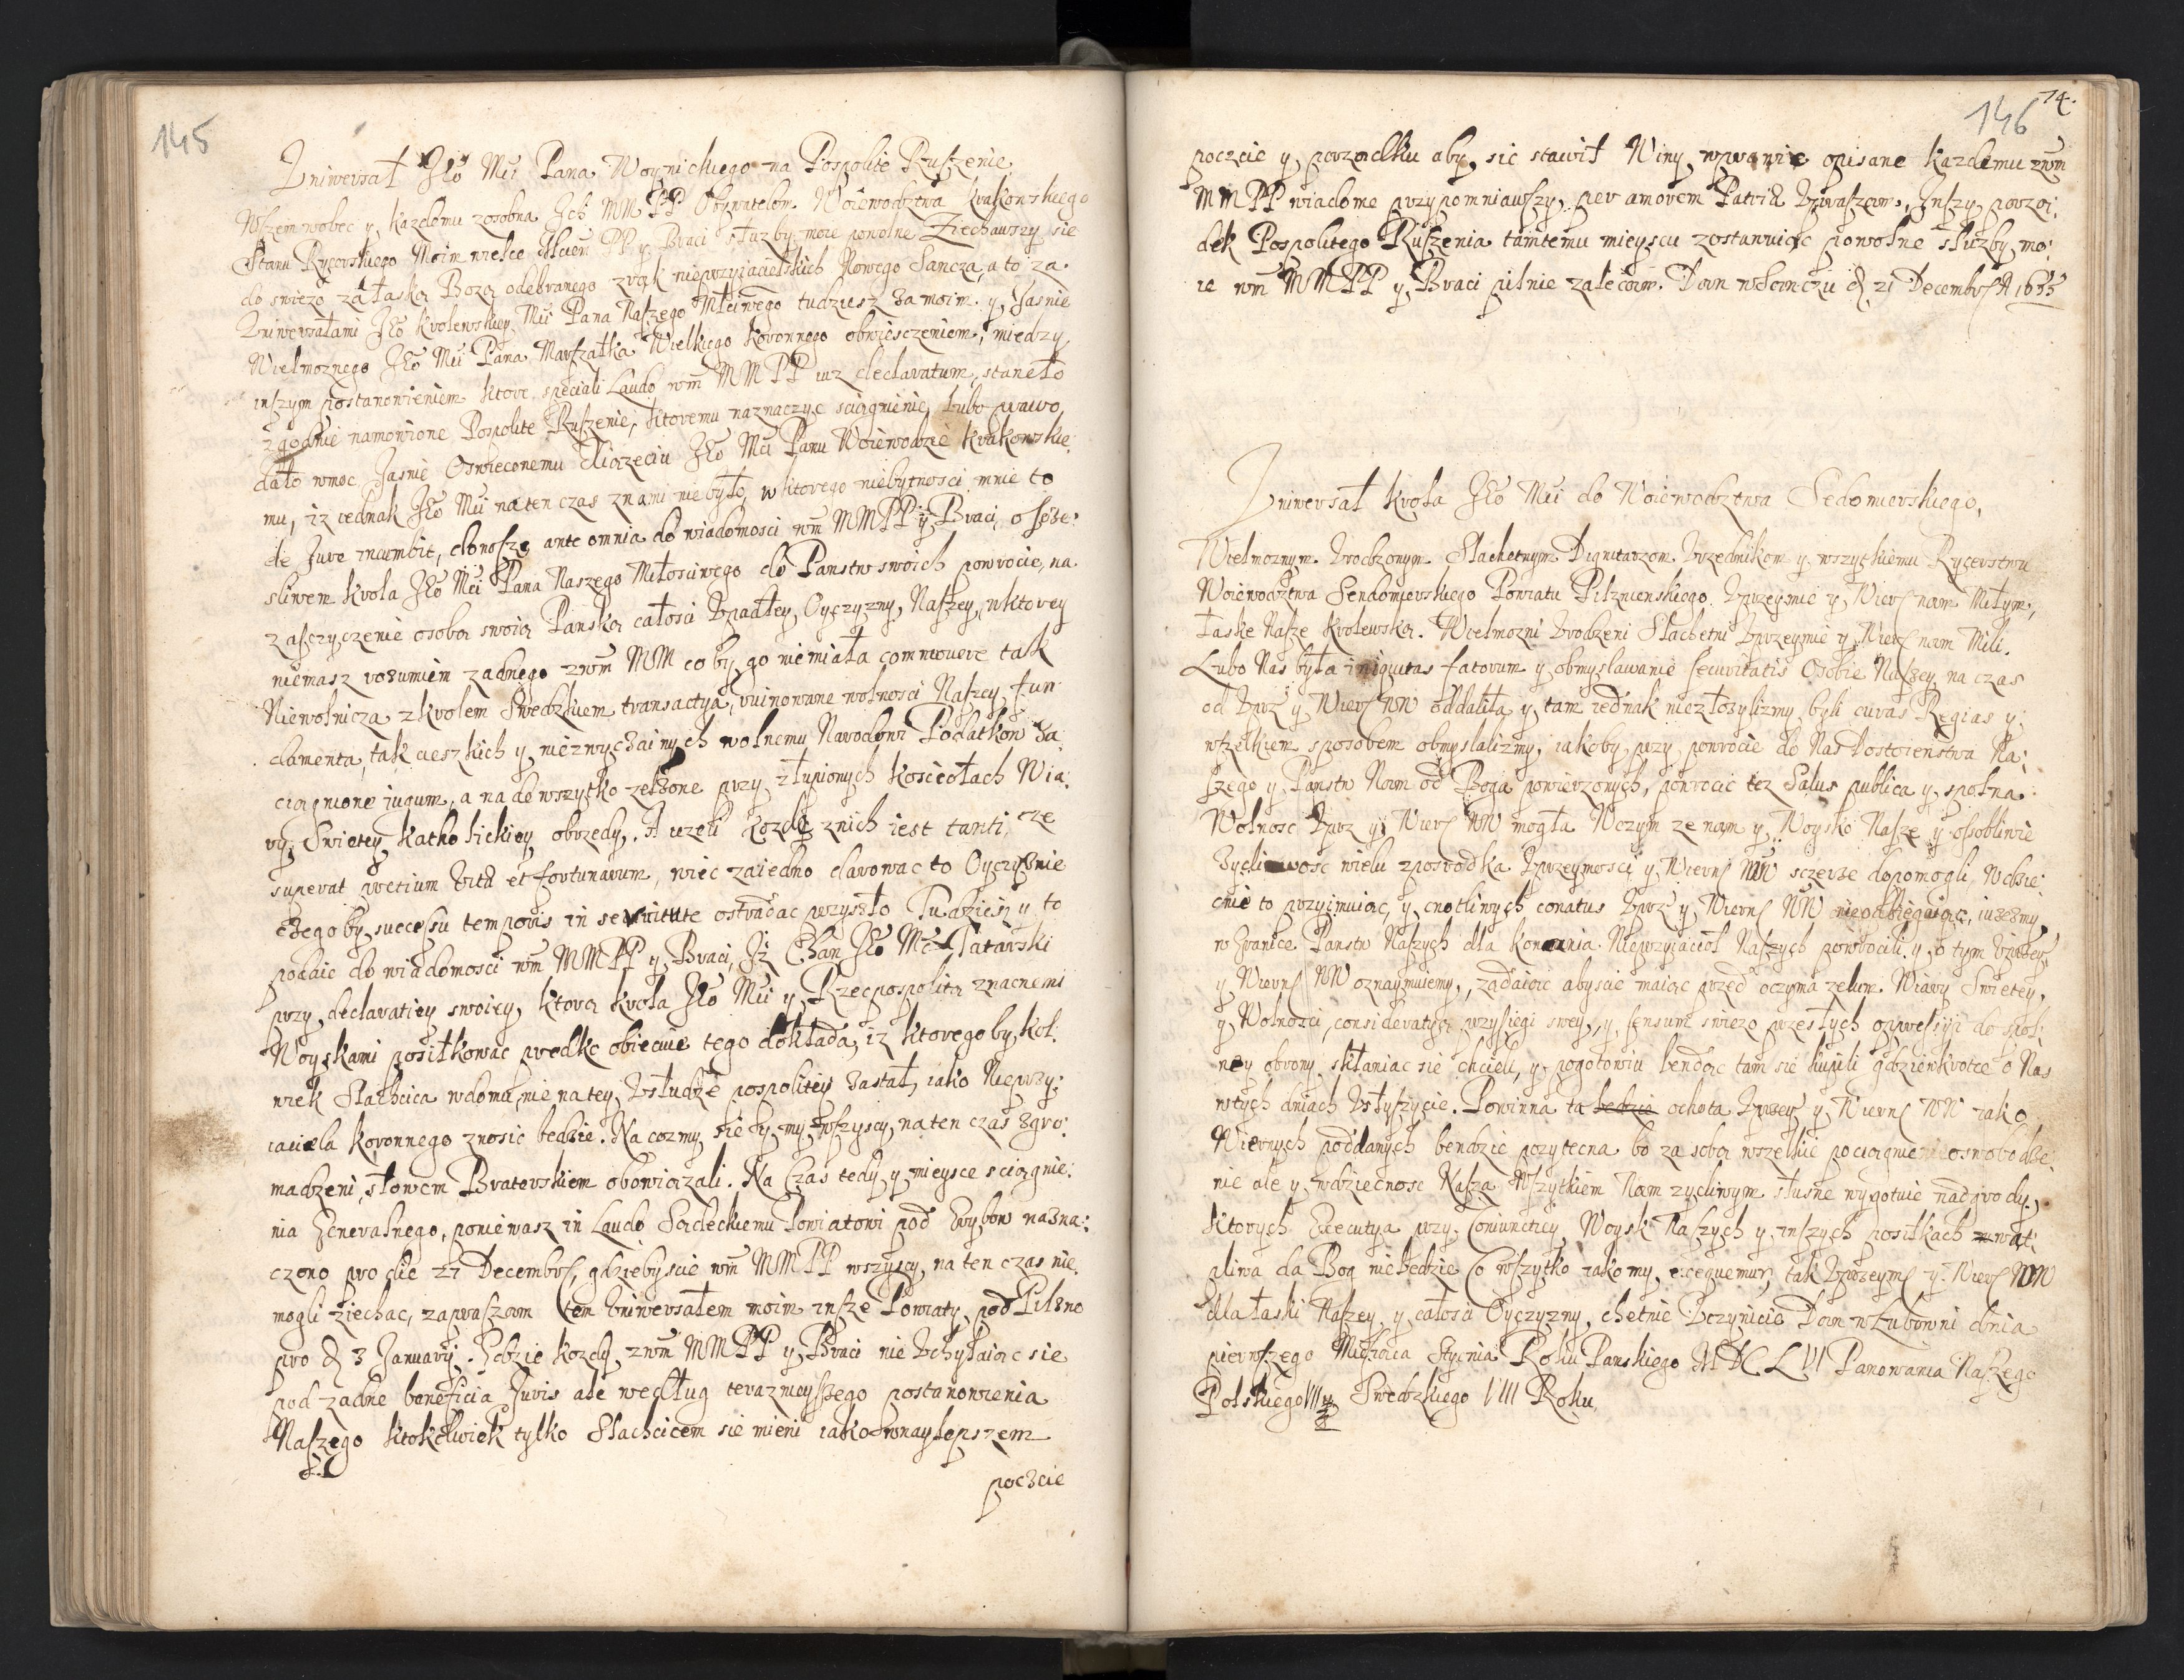 145
Uniwersał JEo Mći Pana Woynickiego na Pospolite Ruszenie
Wszem wobec y kazdemu zosobna Ich MM PP Obywatelom Woiewodztwa Krakowskiego
Stanu Rycerskiego Moim wielce Mćiem PP y Braci słuzby moie powolne Ziechawszy sie
do swiezo za łaską Bozą odebranego z rąk nieprzyiacielskich Nowego Sancza, a to za
Uniwersałami JEo Krolewskiey Mći Pana Naszego Młćiwego tudziesz za moim y Jasnie
Wielmoznego JEo Mći Pana Marszałka Wielkiego Koronnego obwiesczeniem, miedzy
inszym postanowieniem ktore speciali Laudo wm MM PP iuz declaratum, staneło
zgodnie namowione Pospolite Ruszenie, ktoremu naznaczyc sciągnienie, lubo prawo
dało wmoc Jasnie Oswieconemu Xiązeciu JEo Mći Panu Woiewodzie Krakowskie
mu, iz iednak JEo Mći na ten czas z nami nie było, w ktorego niebytnosci mnie to
de Jure incumbit, donoszę ante omnia do wiadomosci wm MMPP y Braci, o sczę:
sliwem Krola JEo Mći Pana Naszego Miłosciwego do Panstw swoich powrocie, na
zasczyczenie osobą swoią Panską całosci Upadłey Oyczyzny Naszey, u ktorey
niemasz rozumiem zadnego z wm MM co by go niemiała commovere tak
Niewolnicza z Krolem Swedzkiem transactya, ruinowane wolnosci Naszey fun
damenta, tak cieszkich y niezwyczainych wolnemu Narodowi Podatkow za:
ciągnione jugum, a nadewszytko zelzone przy złupionych kosciołach Wia:
ry Swietey Katholickiey obrzędy. A iezeli kozde z nich iest tanti, cze
superat pretium vitæ et fortunarum, więc zaiedno darowac to Oyczyznie
czego by successu temporis in servitute ostradac przyszło Tudziesz y to
podaie do wiadomosci wm MMPP y Braci, Iz Chan JEo Mć Tatarski
przy declaratiey swoiey, ktorą Krola JEo Mći y Rzecpospolitą znacnemi
Woyskami posiłkowac prędko obiecuie tego dokłada, iz ktoregoby kol:
wiek Slachcica w domu, nie na tey Usłudze pospolitey zastał, iako Nieprzy:
iaciela koronnego znosic będzie. Na cozmy sie y my wszyscy na ten czas zgro:
madzeni, słowem Braterskiem obowiązali. Na Czas tedy y mieysce sciągnie:
nia Generalnego, poniewasz in Laudo Sądeckiemu Powiatowi pod Grybow nazna:
czono pro die 27 Decembr, gdziebyscie wm MMPP wszyscy na ten czas nie
mogli ziechac, zapraszam tem Uniwersałem moim insze Powiaty pod Pilzno
pro d 3 January. Gdzie kozdy z wm MMPP y Braci nie Uchylaiąc sie
pod zadne beneficia Juris ale według teraznieyszego postanowienia
Naszego ktokolwiek tylko Slachcicem sie mieni iako w naylepszem
poczcie
74.
146
poczcie y porządku aby sie stawił Winy wprawie opisane kazdemu z wm
MMPP wiadome przypomniawszy, per amorem Patriæ Upraszam, Inszy porzą:
dek Pospolitego Ruszenia tamtemu mieyscu zostawuiąc powolne słuzby mo:
ie wm MMPP y Braci pilnie zalecam. Dan w Sanczu d 21 Decembr A 1655
Uniwersał Krola JEo Mći do Woiewodztwa Sedomierskiego.
Wielmoznym Urodzonym Slachetnym Dignitarzom Urzędnikom y wszytkiemu Rycerstwu
Woiewodztwa Sendomierskiego Powiatu Pilznienskiego. Uprzeymie y Wier nam Miłym,
łaskę Nasze Krolewską. Wielmozni Urodzeni Slachetni Uprzeymie y Wier nam Mili.
Lubo Nas była iniquitas fatorum y obmyslawanie securitatis Osobie Naszey na czas
od Uprz y Wier NN oddaliła y tam iednak niezłozylizmy byli curas Regias y
wszelkiem sposobem obmyslalizmy, iakoby przy powrocie do Nas Dostoienstwa Na:
szego y Panstw Nam od Boga powierzonych, powrocic tez Salus publica y spolna
Wolnosc Uprz y Wier NN mogła Wczym ze nam y Woysko Nasze y ossobliwie
zycliwosc wielu z posrodka Uprzeymosci y Wiern NN sczerze dopomogli, Wdzię:
cnie to przyimuiąc, y cnotliwych conatus Uprz y Wiern NN nieodbiegaiąc, iuzezmy
w Granice Panstw Naszych dla konania Nieprzyiacioł Naszych powrocili y o tym Uprzey
y Wiern NN oznaymuiemy, ządaiąc abyscie maiąc przed oczyma zelum Wiary Swietey,
y Wolnosci, consideratyą przysięgi swey, y sensum swiezo przeszłych oppressyi do spol:
ney obrony skłaniac sie chcieli, y pogotowiu bendąc tam sie kupili gdzie wkrotce o Nas
w tych dniach Usłyszycie. Powinna ta ochota Uprzey y Wiern NN iako
Wiernych poddanych bendzie pozytecna bo za sobą wszelkie pociągnie oswobodze
nie ale y wdziecnosc Nasza Wszytkiem Nam zycliwym słusne wygotuie nadgrody,
ktorych Executya przy Coniunctiey Woysk Naszych y inszych posiłkach wąt:
pliwa da Bog niebędzie Co wszytko iako my exequemur, tak Uprzeym y Wier NN
dla łaski Naszey y całosci Oyczyzny, chetnie Uczynicie Dan w Lubowni dnia
pierwszego Miesiąca Stycnia Roku Panskiego MDCLVI Panowania Naszego
Polskiego VIII Swedzkiego VIII Roku.